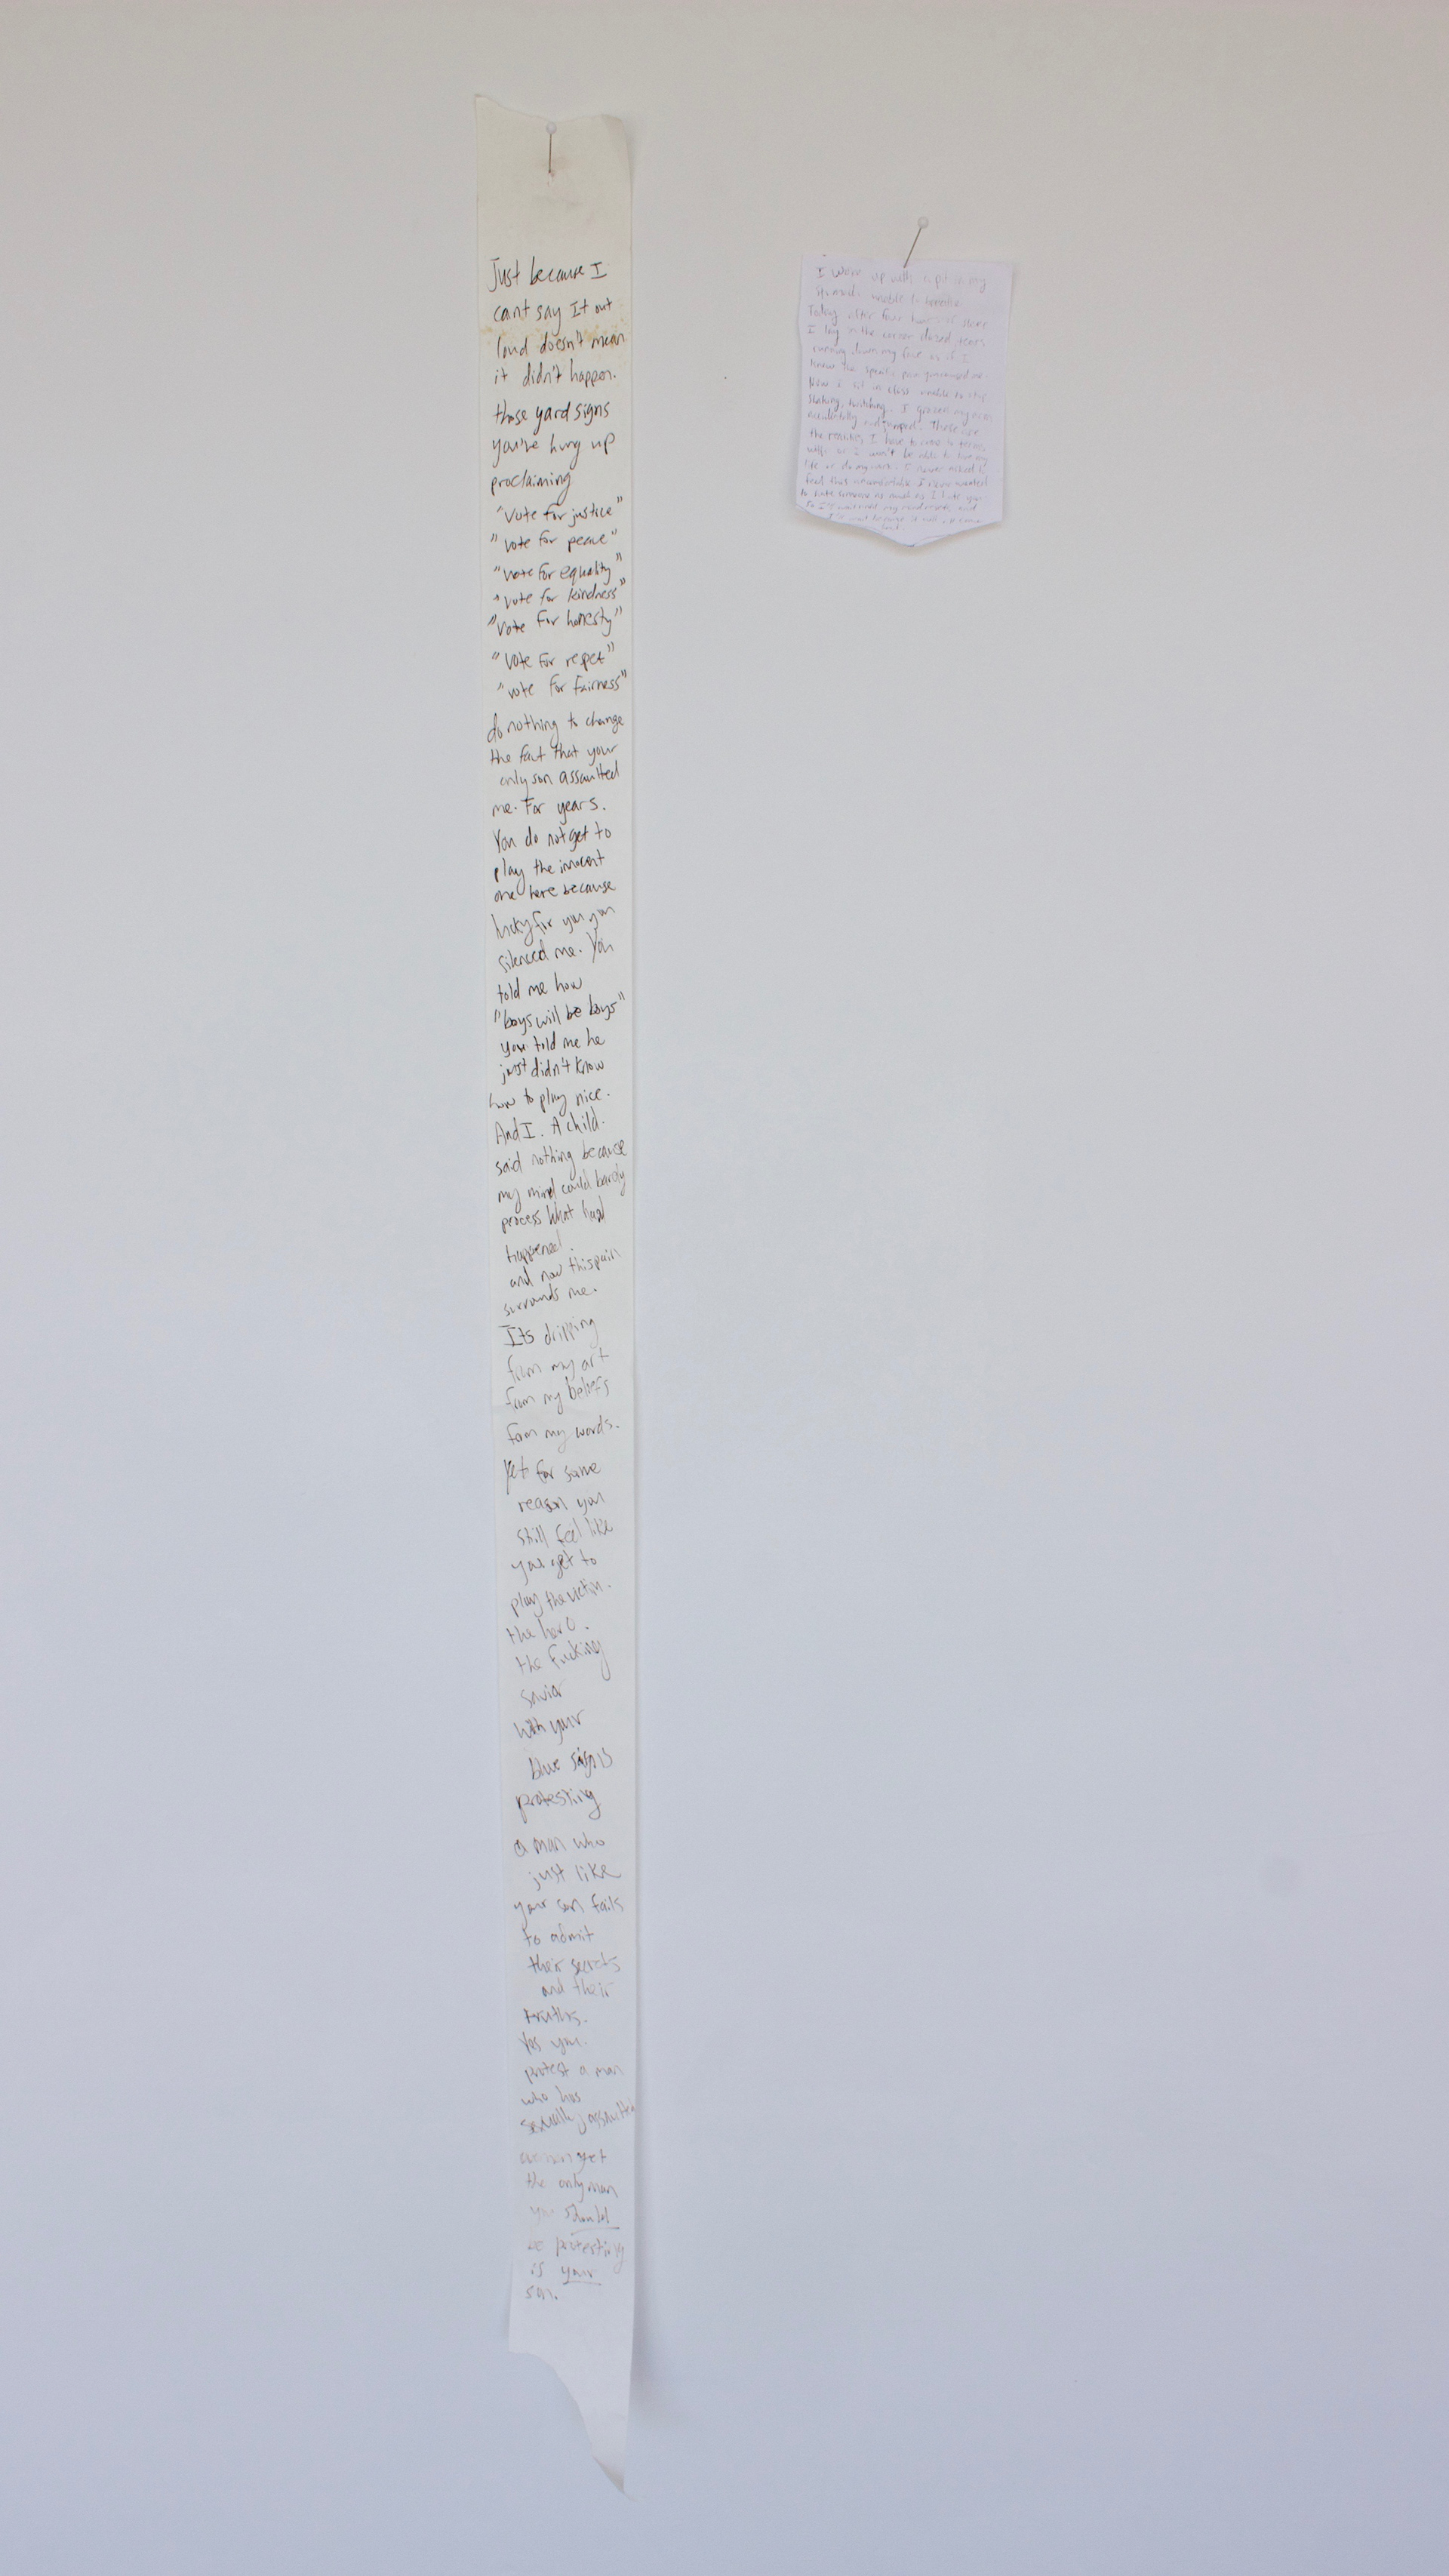 Just because I
cant say It out
loud doesn't mean
it didn't happen.
those yard signs
you've hung up
proclaiming
"Vote for justice"
"vote for peace"
"vote for equality"
"vote for kindness"
"vote for honesty"
"vote for respet"
"vote for fairness"
do nothing to change
the fact that your
only son assaulted
me. For years.
You do not get to
play the innocent
one here because
lucky for you you
silenced me. You
told me how
"boys will be boys"
you told me he
just didn't know
how to play nice.
And I. A child.
said nothing because
my mind could barely
process what had
happened.
and now this pain
surrounds me.
Its dripping
from my art
from my beliefs
from my words.
Yet for some
reason you
still feel like
you get to
play the victim.
the hero.
the fucking
savior
with your
blue signs
protesting
a man who
just like
your son fails
to admit
their secrets
and their
truths.
Yes you.
protest a man
who has
sexually assaulted
yet
the only man
you should
be protesting
is your
son.
I woke up with a pit in my
stomach unable to breathe.
Today after four hours of sleep
I lay in the corner dazed, tears
running down my face as if I
knew the specific pain you caused me.
Now I sit in class unable to stop
shaking, twitching. I grazed my arm
accidentally and jumped. These are
the realities I have to come to terms
with or I won't be able to live my
life or do my I never asked to
feel this uncomfortable I never wanted
to hate someone as much as I hate you
So I'll wait until my mind and
it will all come
back